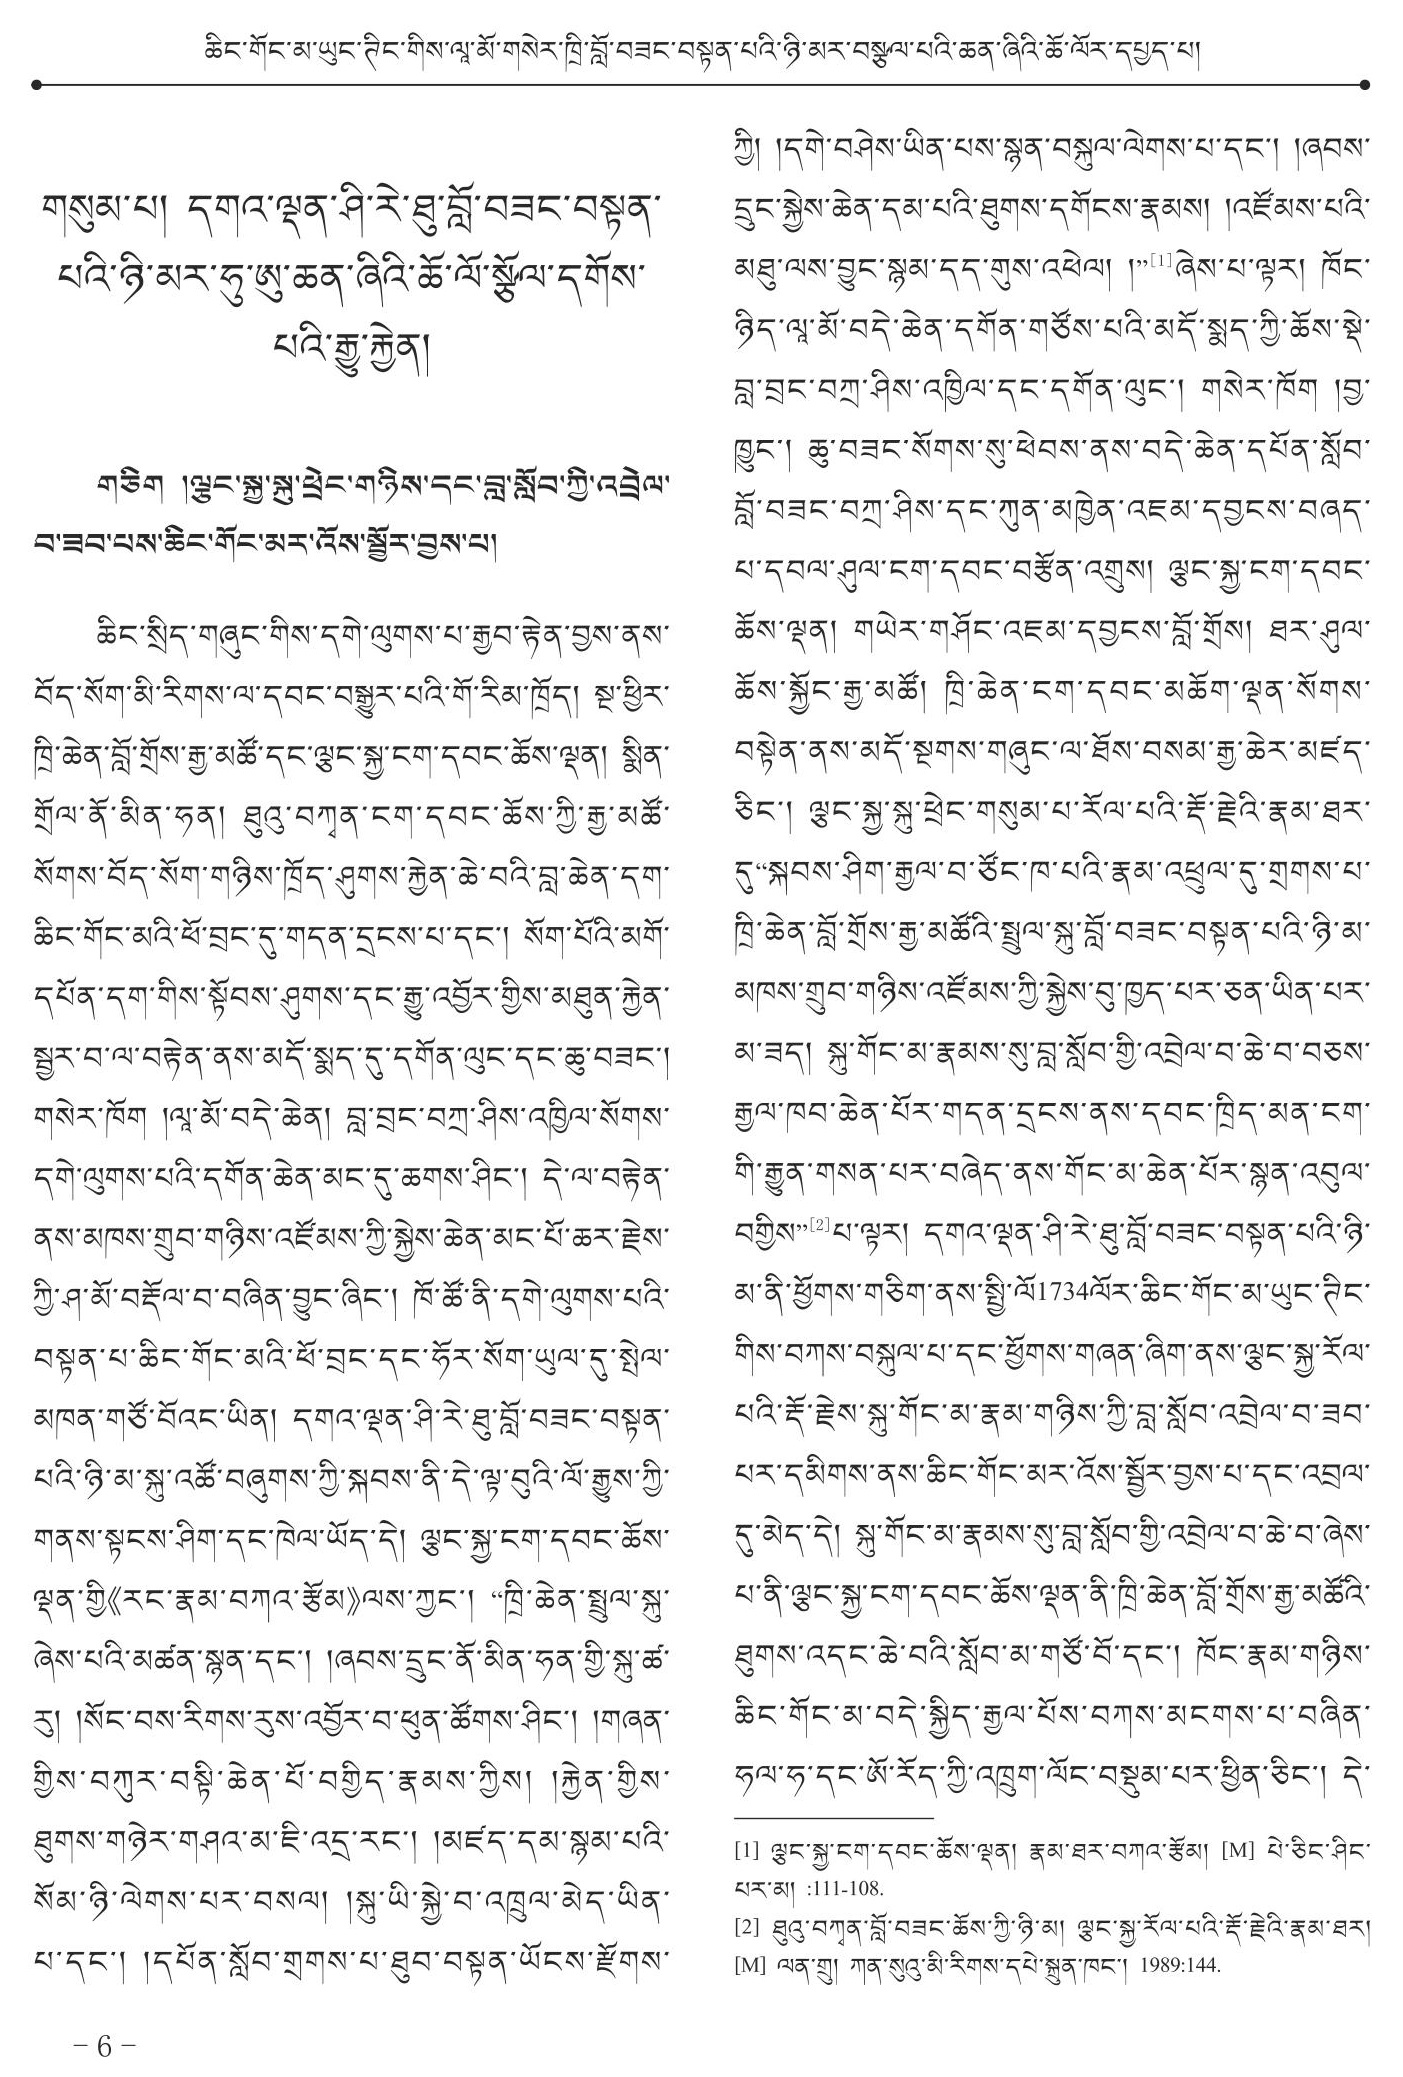 ཆིང་གོང་མ་ཡུང་ཊིང་གིས་ལཱ་མོ་གསེར་ཁྲི་བློ་བཟང་བསྟན་པའི་ཉི་མར་བསྩལ་པའི་ཆན་ཞིའི་ཆོ་ལོར་དཔྱད་པ།
གསུམ་པ། དགའ་ལྡན་ཤི་རེ་ཐུ་བློ་བཟང་བསྟན་
པའི་ཉི་མར་ཧུ་ཨུ་ཆན་ཞིའི་ཆོ་ལོ་སྩོལ་དགོས་
པའི་རྒྱུ་རྐྱེན།
གཅིག །ལྕང་སྐྱ་སྐུ་ཕྲེང་གཉིས་དང་བླ་སློབ་ཀྱི་འབྲེལ་
བ་ཟབ་པས་ཆིང་གོང་མར་འོས་སྦྱོར་བྱས་པ།
ཆིང་སྲིད་གཞུང་གིས་དགེ་ལུགས་པ་རྒྱབ་རྟེན་བྱས་ནས་
བོད་སོག་མི་རིགས་ལ་དབང་བསྒྱུར་པའི་གོ་རིམ་ཁྲོད། སྔ་ཕྱིར་
ཁྲི་ཆེན་བློ་གྲོས་རྒྱ་མཚོ་དང་ལྕང་སྐྱ་ངག་དབང་ཆོས་ལྡན། སྨིན་
གྲོལ་ནོ་མིན་ཧན། ཐུའུ་བཀྭན་ངག་དབང་ཆོས་ཀྱི་རྒྱ་མཚོ་
སོགས་བོད་སོག་གཉིས་ཁྲོད་ཤུགས་རྐྱེན་ཆེ་བའི་བླ་ཆེན་དག་
ཆིང་གོང་མའི་ཕོ་བྲང་དུ་གདན་དྲངས་པ་དང་། སོག་པོའི་མགོ་
དཔོན་དག་གིས་སྟོབས་ཤུགས་དང་རྒྱུ་འབྱོར་གྱིས་མཐུན་རྐྱེན་
སྦྱར་བ་ལ་བརྟེན་ནས་མདོ་སྨད་དུ་དགོན་ལུང་དང་ཆུ་བཟང་།
གསེར་ཁོག །ལཱ་མོ་བདེ་ཆེན། བླ་བྲང་བཀྲ་ཤིས་འཁྱིལ་སོགས་
དགེ་ལུགས་པའི་དགོན་ཆེན་མང་དུ་ཆགས་ཤིང་། དེ་ལ་བརྟེན་
ནས་མཁས་གྲུབ་གཉིས་འཛོམས་ཀྱི་སྐྱེས་ཆེན་མང་པོ་ཆར་རྗེས་
ཀྱི་ཤ་མོ་བརྡོལ་བ་བཞིན་བྱུང་ཞིང་། ཁོ་ཚོ་ནི་དགེ་ལུགས་པའི་
བསྟན་པ་ཆིང་གོང་མའི་ཕོ་བྲང་དང་ཧོར་སོག་ཡུལ་དུ་སྤེལ་
མཁན་གཙོ་བོའང་ཡིན། དགའ་ལྡན་ཤི་རེ་ཐུ་བློ་བཟང་བསྟན་
པའི་ཉི་མ་སྐུ་འཚོ་བཞུགས་ཀྱི་སྐབས་ནི་དེ་ལྟ་བུའི་ལོ་རྒྱུས་ཀྱི་
གནས་སྟངས་ཤིག་དང་ཁེལ་ཡོད་དེ། ལྕང་སྐྱ་ངག་དབང་ཆོས་
ལྡན་གྱི《རང་རྣམ་བཀའ་རྩོམ》ལས་ཀྱང་། “ཁྲི་ཆེན་སྤྲུལ་སྐུ་
ཞེས་པའི་མཚན་སྙན་དང་། །ཞབས་དྲུང་ནོ་མིན་ཧན་གྱི་སྐུ་ཚ་
རུ། །སོང་བས་རིགས་རུས་འབྱོར་བ་ཕུན་ཚོགས་ཤིང་། །གཞན་
གྱིས་བཀུར་བསྟི་ཆེན་པོ་བགྱིད་རྣམས་ཀྱིས། །རྐྱེན་གྱིས་
ཐུགས་གཉེར་གཤའ་མ་ཇི་འདྲ་རང་། །མཛད་དམ་སྙམ་པའི་
སོམ་ཉི་ལེགས་པར་བསལ། །སྐུ་ཡི་སྐྱེ་བ་འཁྲུལ་མེད་ཡིན་
པ་དང་། །དཔོན་སློབ་གྲགས་པ་ཐུབ་བསྟན་ཡོངས་རྫོགས་
ཀྱི། །དགེ་བཤེས་ཡིན་པས་སྙན་བསྐུལ་ལེགས་པ་དང་། །ཞབས་
དྲུང་སྐྱེས་ཆེན་དམ་པའི་ཐུགས་དགོངས་རྣམས། །འཛོམས་པའི་
མཐུ་ལས་བྱུང་སྙམ་དད་གུས་འཕེལ། །”[1]ཞེས་པ་ལྟར། ཁོང་
ཉིད་ལཱ་མོ་བདེ་ཆེན་དགོན་གཙོས་པའི་མདོ་སྨད་ཀྱི་ཆོས་སྡེ་
བླ་བྲང་བཀྲ་ཤིས་འཁྱིལ་དང་དགོན་ལུང་། གསེར་ཁོག །བྱ་
ཁྱུང་། ཆུ་བཟང་སོགས་སུ་ཕེབས་ནས་བདེ་ཆེན་དཔོན་སློབ་
བློ་བཟང་བཀྲ་ཤིས་དང་ཀུན་མཁྱེན་འཇམ་དབྱངས་བཞད་
པ་དབལ་ཤུལ་ངག་དབང་བརྩོན་འགྲུས། ལྕང་སྐྱ་ངག་དབང་
ཆོས་ལྡན། གཡེར་གཤོང་འཇམ་དབྱངས་བློ་གྲོས། ཐར་ཤུལ་
ཆོས་སྐྱོང་རྒྱ་མཚོ། ཁྲི་ཆེན་ངག་དབང་མཆོག་ལྡན་སོགས་
བསྟེན་ནས་མདོ་སྔགས་གཞུང་ལ་ཐོས་བསམ་རྒྱ་ཆེར་མཛད་
ཅིང་། ལྕང་སྐྱ་སྐུ་ཕྲེང་གསུམ་པ་རོལ་པའི་རྡོ་རྗེའི་རྣམ་ཐར་
དུ“སྐབས་ཤིག་རྒྱལ་བ་ཙོང་ཁ་པའི་རྣམ་འཕྲུལ་དུ་གྲགས་པ་
ཁྲི་ཆེན་བློ་གྲོས་རྒྱ་མཚོའི་སྤྲུལ་སྐུ་བློ་བཟང་བསྟན་པའི་ཉི་མ་
མཁས་གྲུབ་གཉིས་འཛོམས་ཀྱི་སྐྱེས་བུ་ཁྱད་པར་ཅན་ཡིན་པར་
མ་ཟད། སྐུ་གོང་མ་རྣམས་སུ་བླ་སློབ་ཀྱི་འབྲེལ་བ་ཆེ་བ་བཅས་
རྒྱལ་ཁབ་ཆེན་པོར་གདན་དྲངས་ནས་དབང་ཁྲིད་མན་ངག་
གི་རྒྱུན་གསན་པར་བཞེད་ནས་གོང་མ་ཆེན་པོར་སྙན་འབུལ་
བགྱིས”[2]པ་ལྟར། དགའ་ལྡན་ཤི་རེ་ཐུ་བློ་བཟང་བསྟན་པའི་ཉི་
མ་ནི་ཕྱོགས་གཅིག་ནས་སྤྱི་ལོ1734ལོར་ཆིང་གོང་མ་ཡུང་ཊིང་
གིས་བཀས་བསྐུལ་པ་དང་ཕྱོགས་གཞན་ཞིག་ནས་ལྕང་སྐྱ་རོལ་
པའི་རྡོ་རྗེས་སྐུ་གོང་མ་རྣམ་གཉིས་ཀྱི་བླ་སློབ་འབྲེལ་བ་ཟབ་
པར་དམིགས་ནས་ཆིང་གོང་མར་འོས་སྦྱོར་བྱས་པ་དང་འབྲལ་
དུ་མེད་དེ། སྐུ་གོང་མ་རྣམས་སུ་བླ་སློབ་ཀྱི་འབྲེལ་བ་ཆེ་བ་ཞེས་
པ་ནི་ལྕང་སྐྱ་ངག་དབང་ཆོས་ལྡན་ནི་ཁྲི་ཆེན་བློ་གྲོས་རྒྱ་མཚོའི་
ཐུགས་འདང་ཆེ་བའི་སློབ་མ་གཙོ་བོ་དང་། ཁོང་རྣམ་གཉིས་
ཆིང་གོང་མ་བདེ་སྐྱིད་རྒྱལ་པོས་བཀས་མངགས་པ་བཞིན་
ཧལ་ཧ་དང་ཨོ་རོད་ཀྱི་འཁྲུག་ལོང་བསྡུམ་པར་ཕྱིན་ཅིང་། དེ་
[1] ལྕང་སྐྱ་ངག་དབང་ཆོས་ལྡན། རྣམ་ཐར་བཀའ་རྩོམ། [M] པེ་ཅིང་ཤིང་
པར་མ། :111-108.
[2] ཐུའུ་བཀྭན་བློ་བཟང་ཆོས་ཀྱི་ཉི་མ། ལྕང་སྐྱ་རོལ་པའི་རྡོ་རྗེའི་རྣམ་ཐར།
[M] ལན་གྲུ། ཀན་སུའུ་མི་རིགས་དཔེ་སྐྲུན་ཁང་། 1989:144.
– 6 –